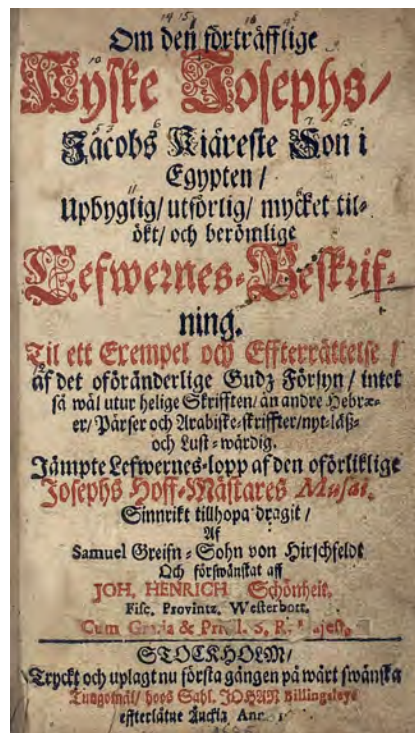 Om den förträfflige
Kyske Josephs/
Jacobs Kiäreste Son i
Egypten/
Upbyglig/ utförlig/ mycket til-
ökt/ och berömlige
Lefwernes-Beskrif-
ning.
Til ett Exempel och Effterrättelse/
af det oföränderlige Gudz Försyn/ intet
så wäl utur helige Skrifften/ än andre Hebræ-
er/ Pärser och Arabiske-skriffter/ nyt-läß-
och Lust-wärdig.
Jämpte Lefwernes-lopp af den oförliklige
Josephs Hoff-Mästares Musai.
Sinnrikt tillhopa dragit/
Af
Samuel Greifn-Sohn von Hirschfeldt
Och förswänskat aff
JOH. HENRICH Schönheit.
Fisc. Provintz. Westerbott.
Cum Gratia & S. R.
STOCKHOLM/
Tryckt och uplagt nu första gången på wårt swänska
Tungomål/ hoos Sahl. JOHAN Billingsleys
effterlätne Änckia